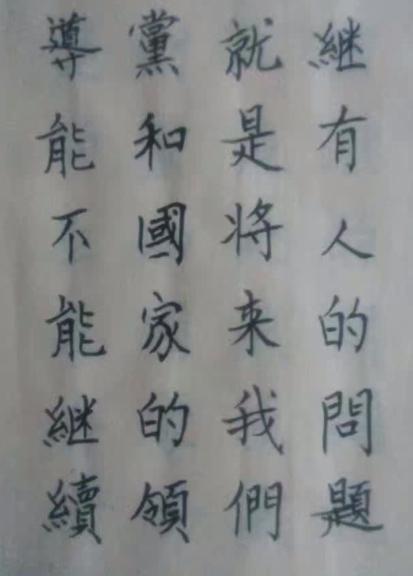 继有人的問題
就是将来我們
黨和國家的領
導能不能继續